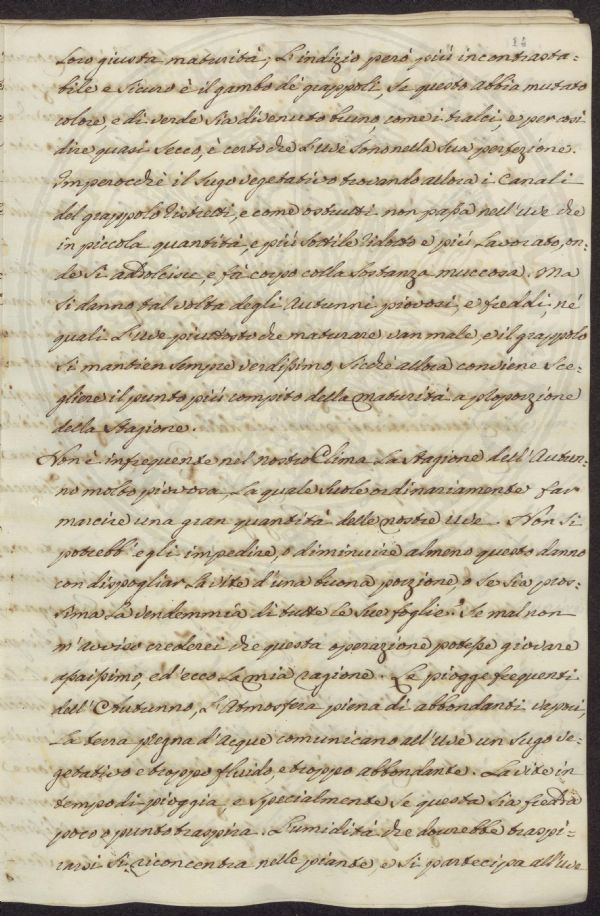 loro giusta maturità; L'indizio peró piú incontrasta=
bile e sicuro è il gambo de' grappoli, Se questo abbia mutato
colore, e di verde sia divenuto bruno, come i tralci, e per così
dire quasi secco, è certo che L'uve sono nella sua perfezione.
Imperocchè il sugo vegetativo trovando allora i Canali
del grappolo ristretti, e come ostrutti non passa nell'uve che
in piccola quantità, e piú sottile ridotto e piú lavorato, on=
de si addolcisce, e fà corpo colla sostanza muccosa. Ma
si danno tal volta degli Autunni piovosi, e freddi, né
quali L'uve piuttosto che maturare van male, e il grappolo
si mantien sempre verdissimo, sicchè allora conviene sce=
gliere il punto piú compito della maturità a proporzione
della stagione.
Non è infrequente nel nostro Clima La stagione dell'Autun=
no molto piovosa La quale suole ordinariamente far
marcire una gran quantità delle nostre uve. Non si
potrebb'egli impedire, o diminuire almeno questo danno
con dispogliar La vite d'una buona porzione, o se sia pros=
sima La vendemmia di tutte le sue foglie? Se mal non
m'avviso crederei che questa operazione potesse giovare
assaissimo, ed ecco La mia ragione. Le piogge frequenti
dell'Autunno, L'Atmosfera piena di abbondanti vapori,
La terra pregna d'Acque comunicano all'uve un sugo ve=
getativo e troppo fluido, e troppo abbondante. La vite in
tempo di pioggia, e specialmente se questa sia fredda
poco o punto traspira. L'umidità che dovrebbe traspi=
rarsi si riconcentra nelle piante, e si partecipa all'uve